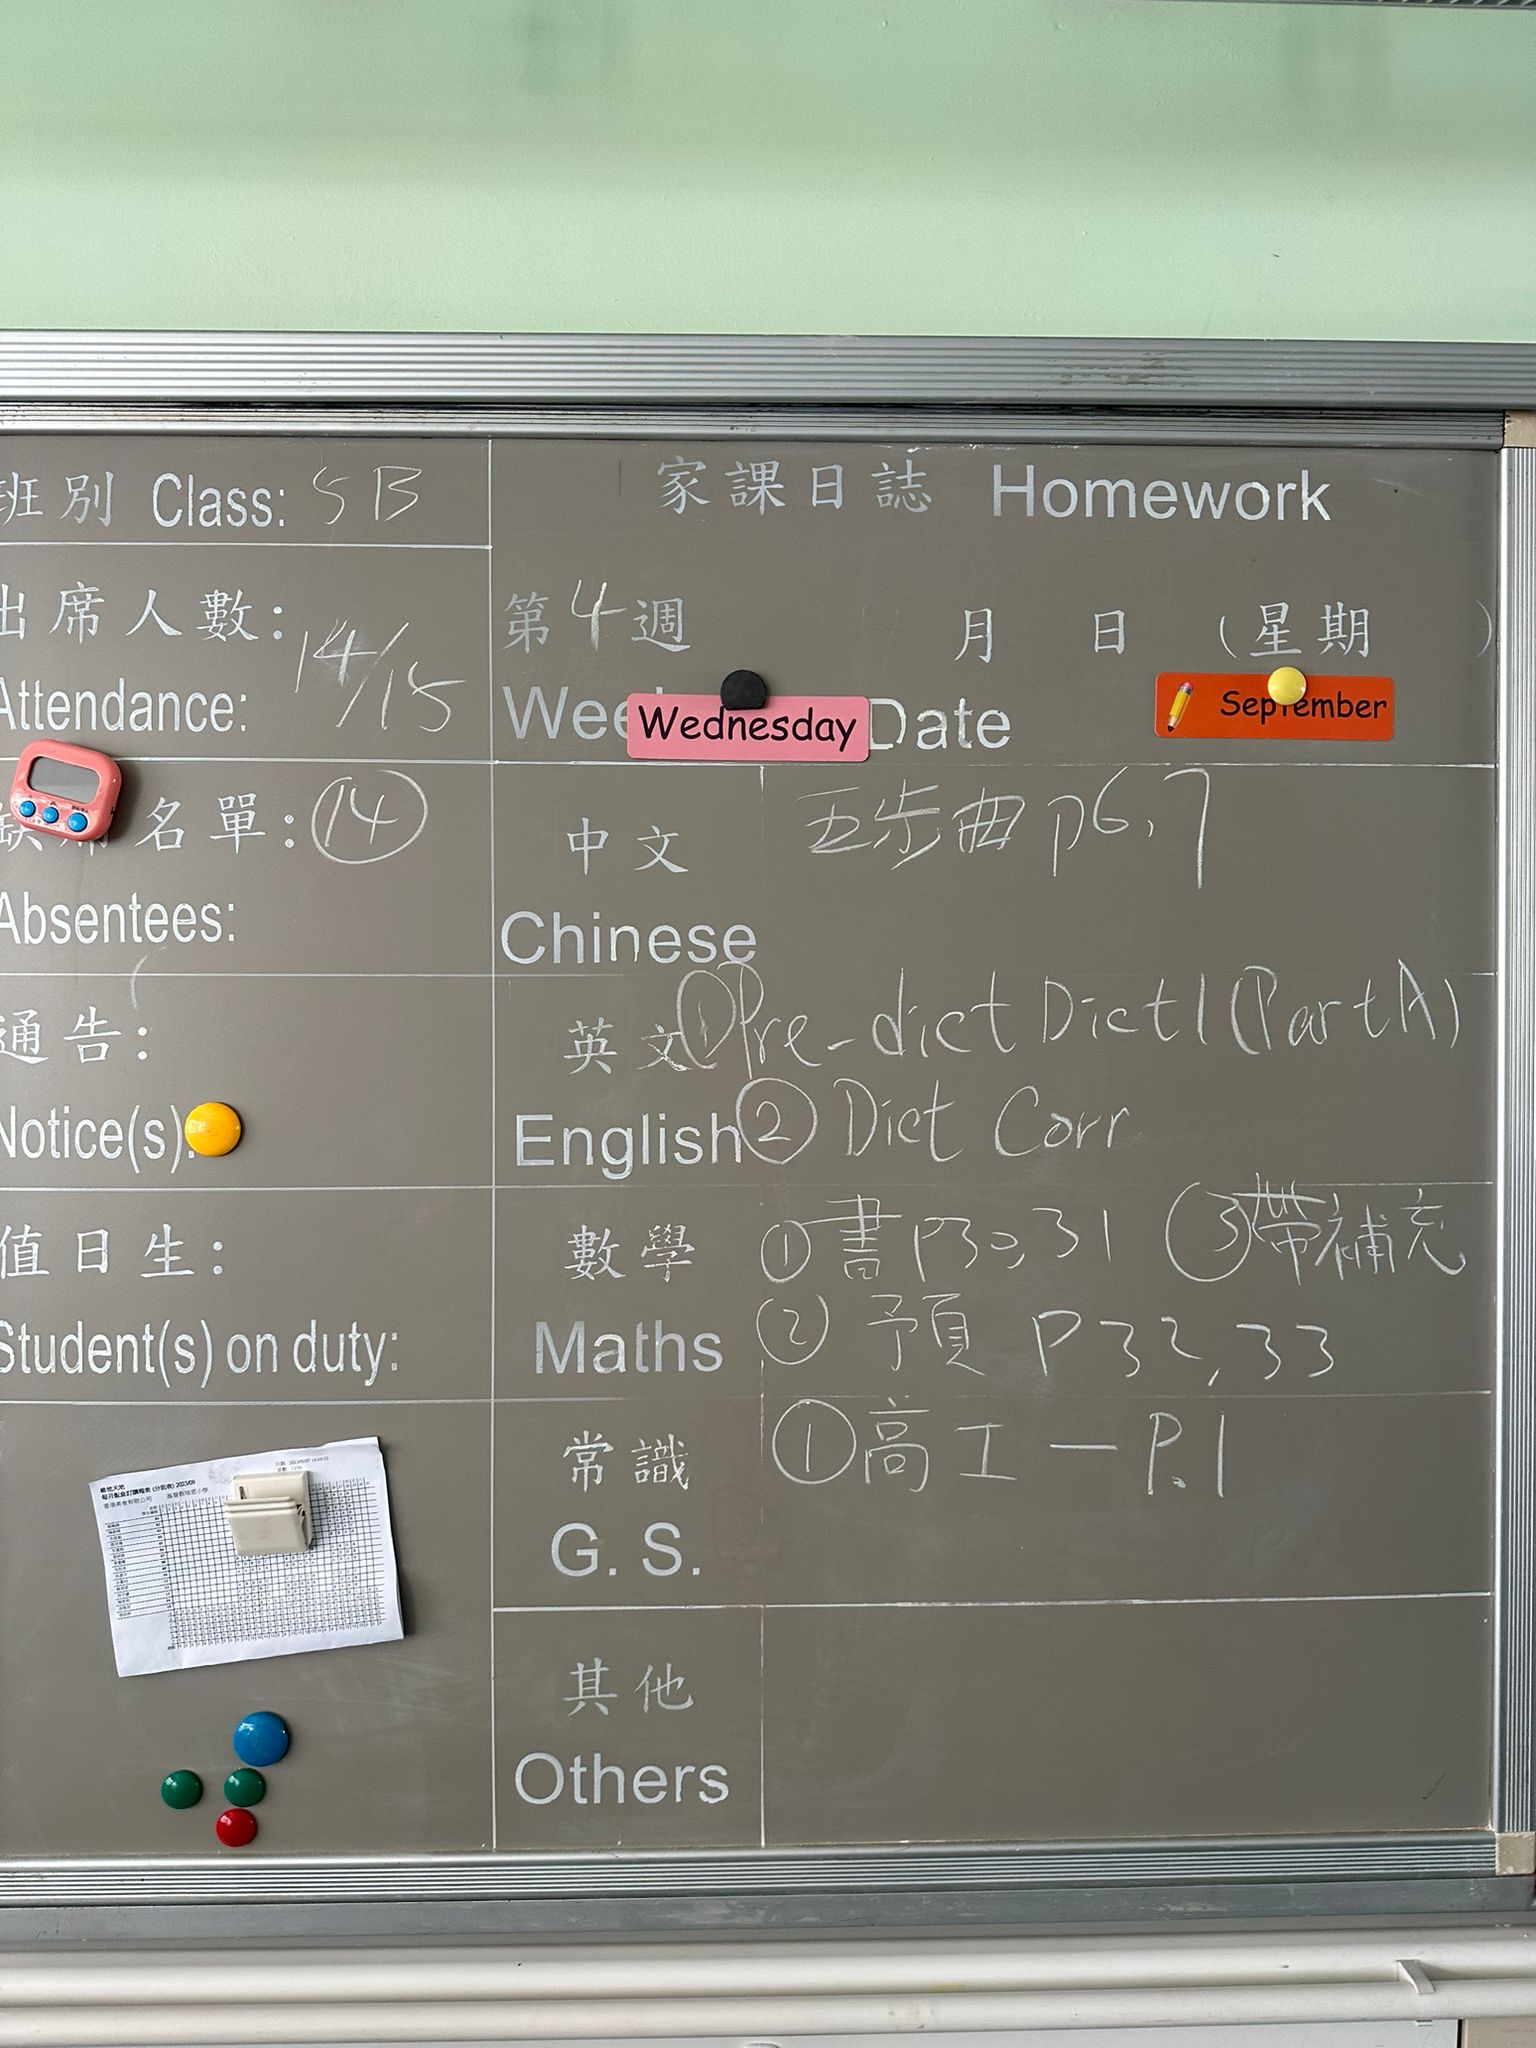 班別 Class: 5B
出席人數:
Attendance: 14/15
名單: ⑭
Absentees:
通告:
Notice(s):
值日生:
Student(s) on duty:
家課日誌 Homework
第4週 月 日 (星期 )
Wee Wednesday Date September
中文 五步曲 p6,7
Chinese
英文 ①Pre-dict Dict 1 (Part A)
English ② Dict Corr
數學 ①書P30,31 ③帶補充
Maths ② 預 P32,33
常識 ①高工一P.1
G. S.
其他
Others